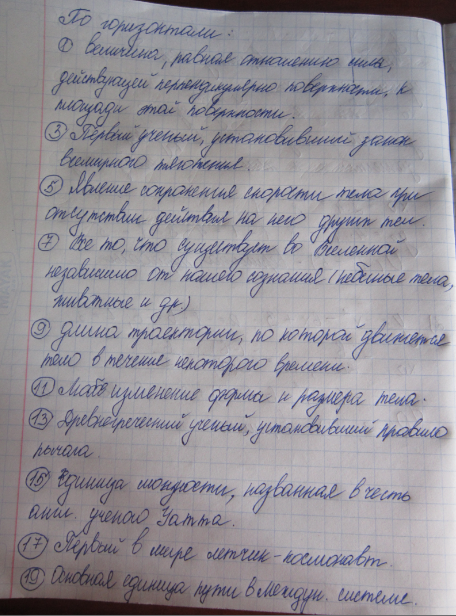 По горизонтали:
① величина, равная отношению силы,
действующей перпендикулярно поверхности, к
площади этой поверхности.
③ Первый ученый, установивший закон
всемирного тяготения.
⑤ Явление сохранения скорости тела при
отсутствии действия на него других тел.
⑦ Все то, что существует во Вселенной
независимо от нашего сознания (небесные тела,
животные и др)
⑨ длина траектории, по которой движется
тело в течение некоторого времени.
⑪ Любое изменение формы и размера тела.
⑬ Древнегреческий ученый, установивший правило
рычага
⑮ Единица мощности, названная в честь
англ. ученого Уатта.
⑰ Первый в мире летчик-космонавт.
⑲ Основная единица пути в междун. системе.